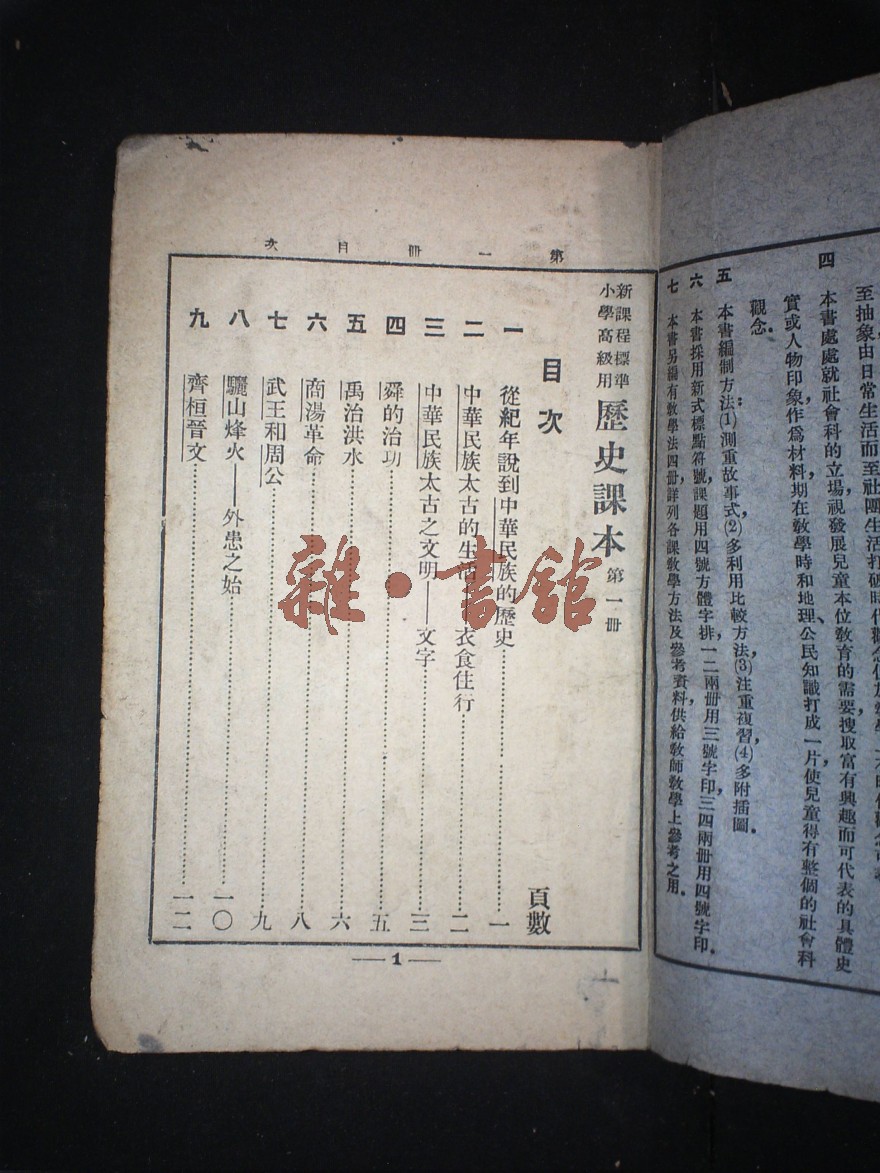 至抽象由日常生活而至社團生活打破時代觀念
四 本書處處就社會科的立場，視發展兒童本位教育的需要，搜取富有興趣而可代表的具體史
實或人物印象作爲材料，期在教學時和地理、公民知識打成一片，使兒童得有整個的社會科
觀念。
五 本書編制方法：(1)測重故事式，(2)多利用比較方法，(3)注重複習，(4)多附插圖。
六 本書採用新式標點符號，課題用四號方體字排，一二兩冊用三號字印，三四兩冊用四號字印。
七 本書另編有教學法四冊，詳列各課教學方法及參考資料，供給教師教學上參考之用。
第一冊目次
新課程標準
小學高級用
歷史課本 第一冊
目次
頁數
一 從紀年說到中華民族的歷史 一
二 中華民族太古的生活 衣食住行 二
三 中華民族太古之文明——文字 三
四 舜的治功 五
五 禹治洪水 六
六 商湯革命 八
七 武王和周公 九
八 驪山烽火——外患之始 一〇
九 齊桓晉文 一二
— 1 —
雜·書館